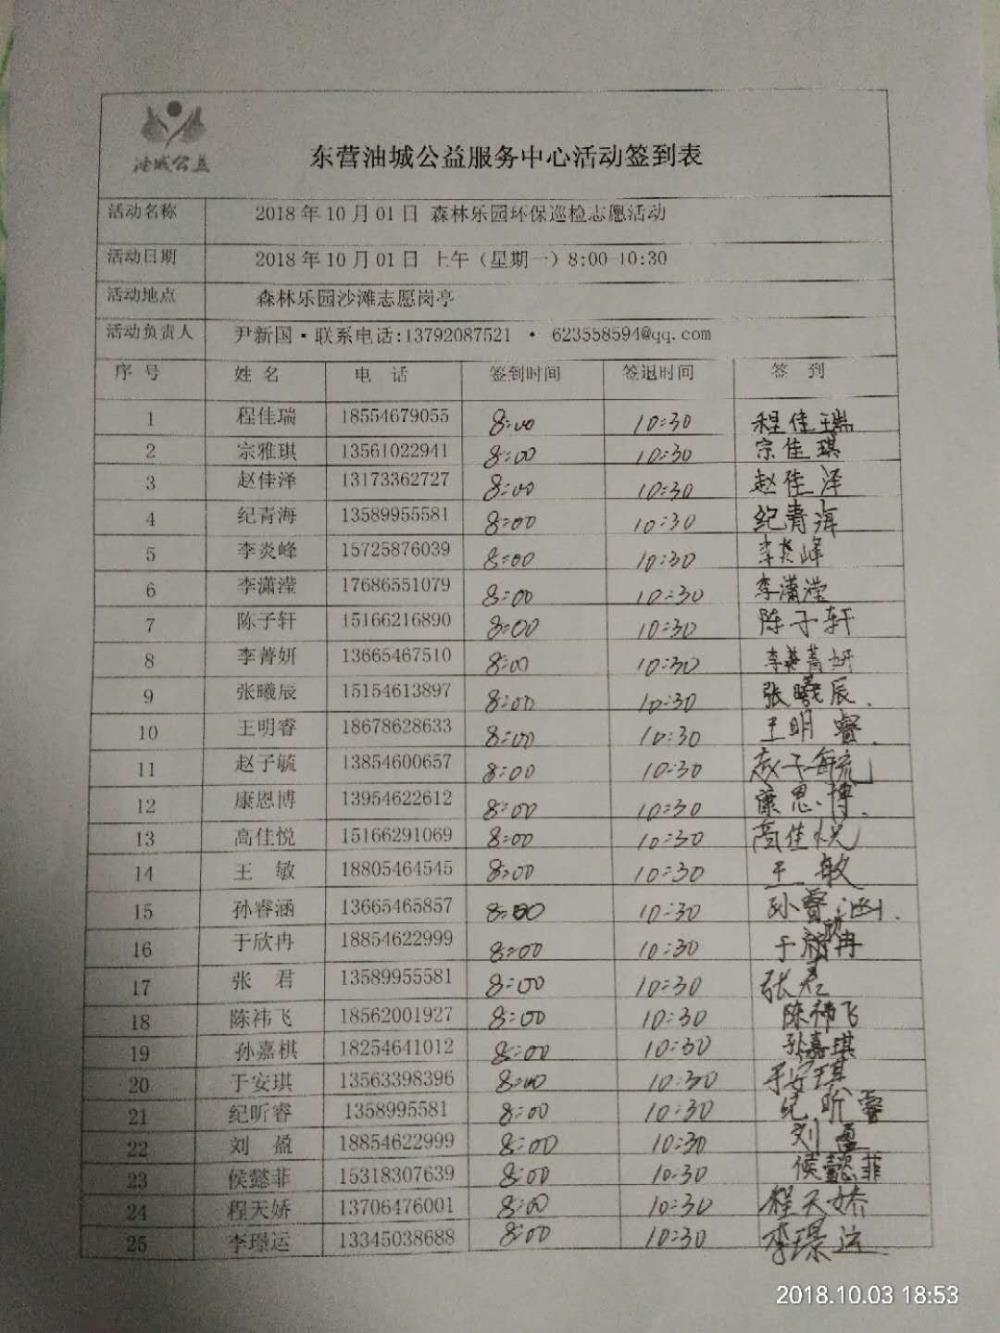 油城公益
东营油城公益服务中心活动签到表
活动名称 2018 年 10 月 01 日 森林乐园环保巡检志愿活动
活动日期 2018 年 10 月 01 日 上午（星期一）8:00-10:30
活动地点 森林乐园沙滩志愿岗亭
活动负责人 尹新国·联系电话:13792087521 · 623558594@qq.com
序 号 姓 名 电 话 签到时间 签退时间 签 到
1 程佳瑞 18554679055 8:00 10:30 程佳瑞
2 宗雅琪 13561022941 8:00 10:30 宗佳琪
3 赵佳泽 13173362727 8:00 10:30 赵佳泽
4 纪青海 13589955581 8:00 10:30 纪青海
5 李炎峰 15725876039 8:00 10:30 李炎峰
6 李潇滢 17686551079 8:00 10:30 李潇滢
7 陈子轩 15166216890 8:00 10:30 陈子轩
8 李菁妍 13665467510 8:00 10:30 李菁妍
9 张曦辰 15154613897 8:00 10:30 张曦辰.
10 王明睿 18678628633 8:00 10:30 王明睿.
11 赵子毓 13854600657 8:00 10:30 赵子毓
12 康恩博 13954622612 8:00 10:30 康恩博.
13 高佳悦 15166291069 8:00 10:30 高佳悦
14 王 敏 18805464545 8:00 10:30 王敏
15 孙睿涵 13665465857 8:00 10:30 孙睿涵.
16 于欣冉 18854622999 8:00 10:30 于欣冉
17 张 君 13589955581 8:00 10:30 张君
18 陈祎飞 18562001927 8:00 10:30 陈祎飞
19 孙嘉棋 18254641012 8:00 10:30 孙嘉琪
20 于安琪 13563398396 8:00 10:30 于安琪
21 纪昕睿 1358995581 8:00 10:30 纪昕睿
22 刘 盈 18854622999 8:00 10:30 刘盈
23 侯懿菲 15318307639 8:00 10:30 侯懿菲
24 程天娇 13706476001 8:00 10:30 程天娇
25 李璟运 13345038688 8:00 10:30 李璟运
2018.10.03 18:53